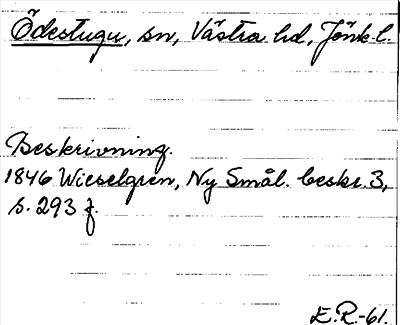 Ödestugu, sn, Västra hd, Jönk. l.
Beskrivning.
1846 Wieselgren, Ny Smål. beskr. 3,
s. 293 f.
E.R.-61.